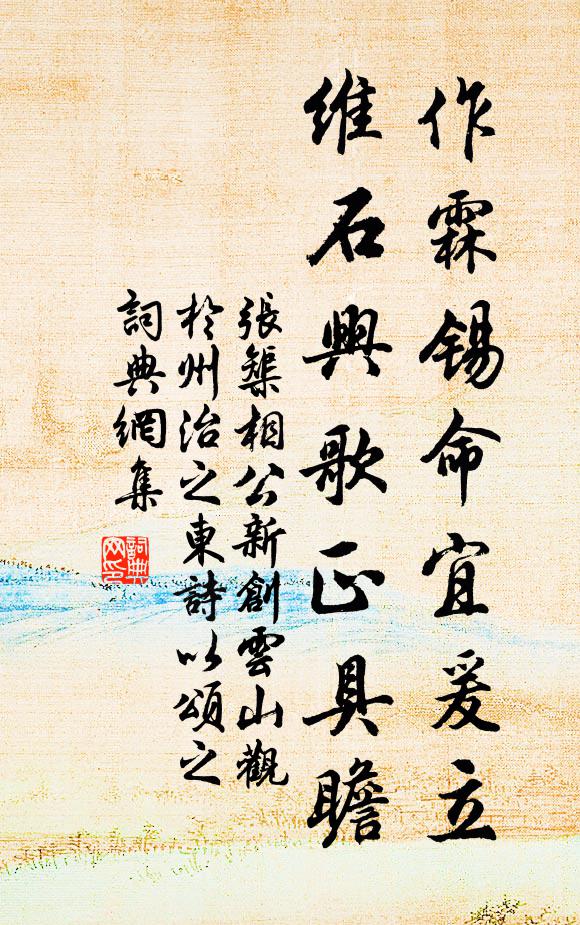 作霖錫命宜爰立
維石興歌正具瞻
張榘相公新創雲山觀
於州治之東詩以頌之
詞典網集
詞典
网印